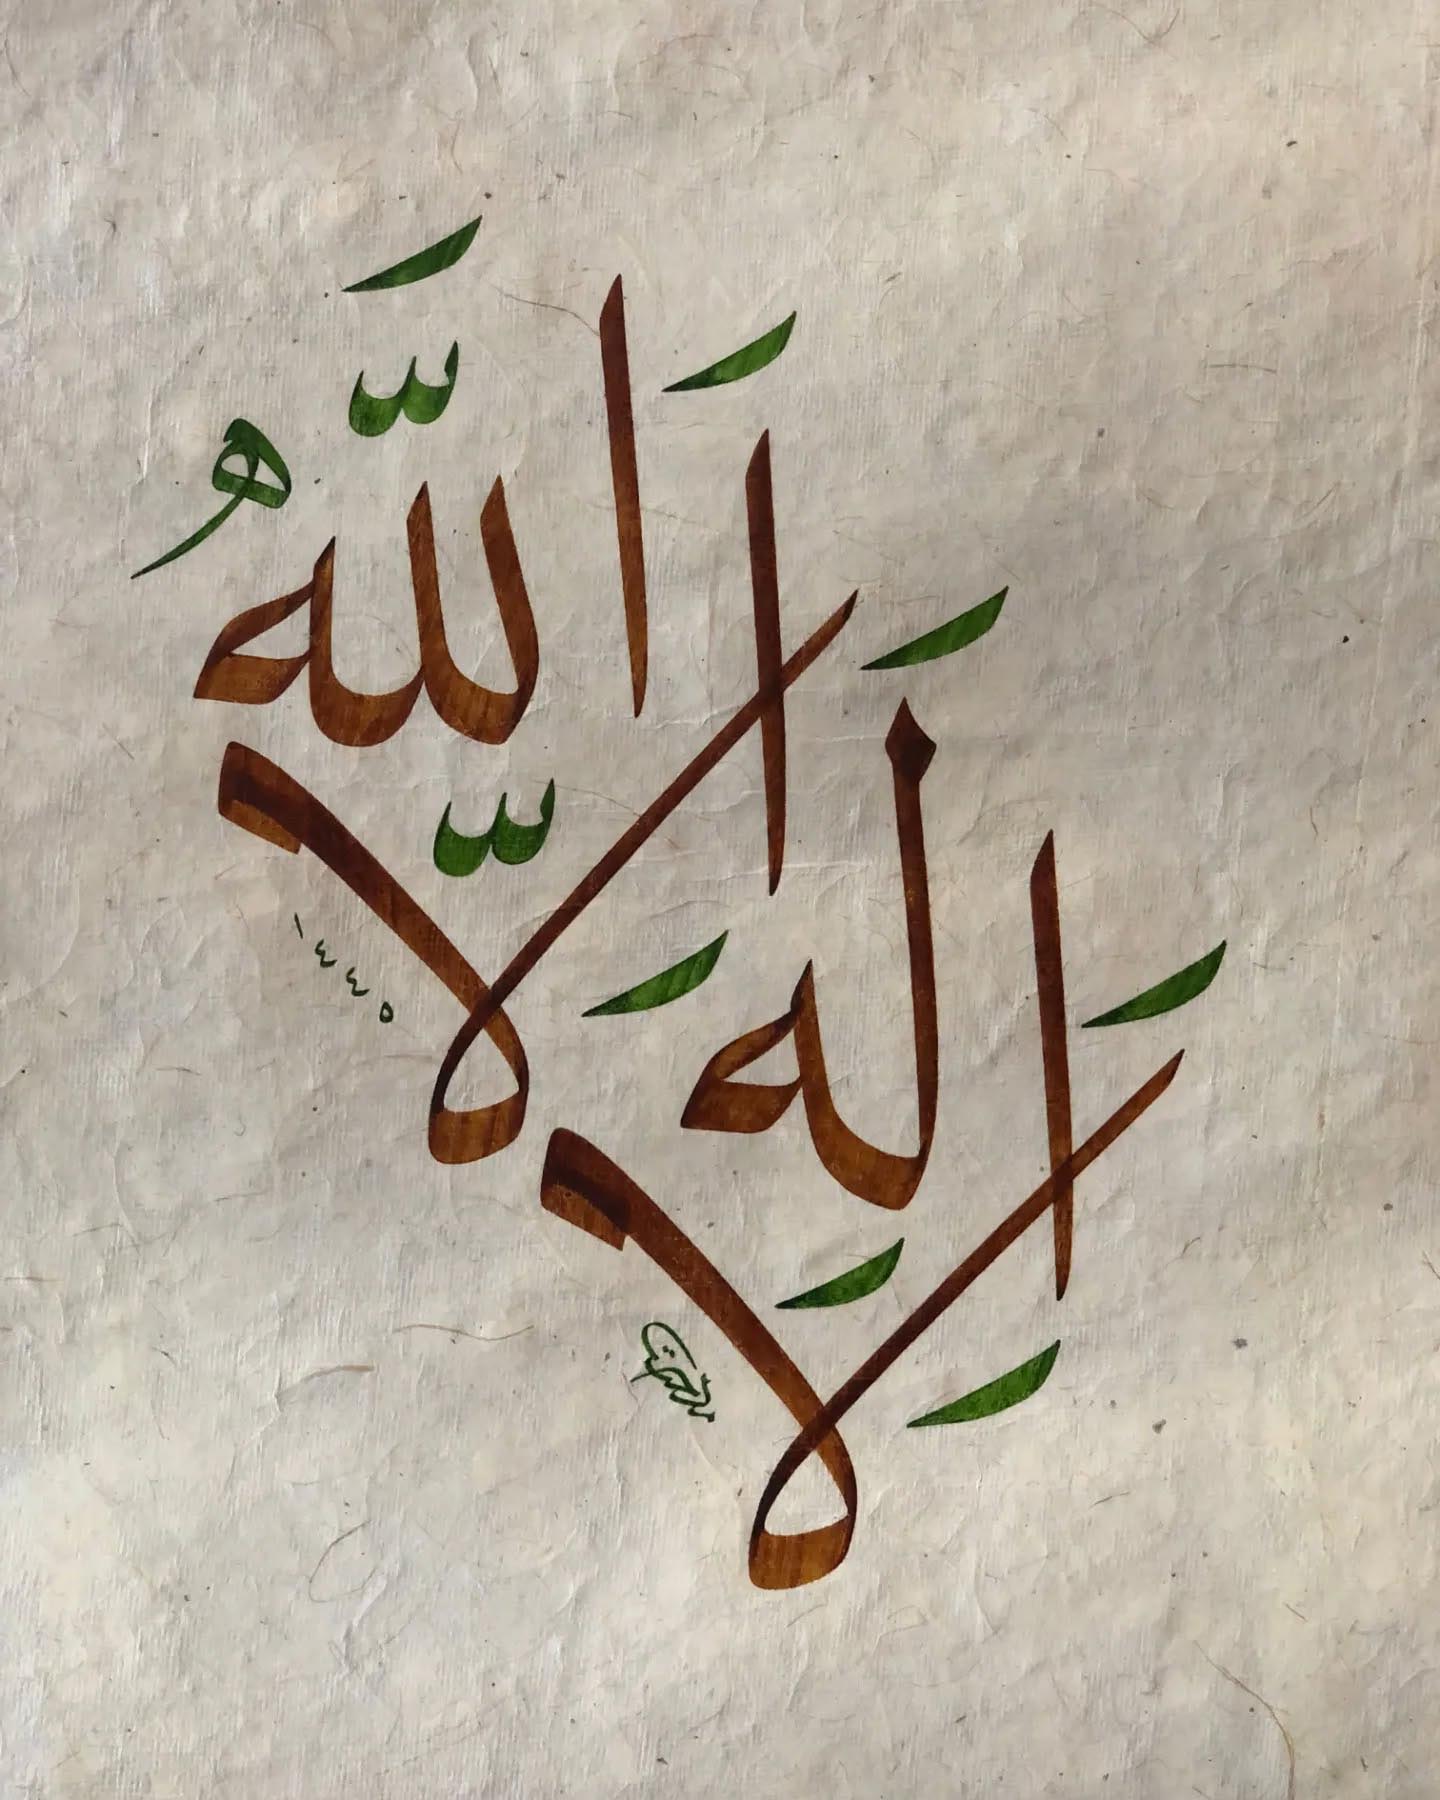 لَا اِلَهَ
اِلَّا اللَّهُ
١٤٤٥